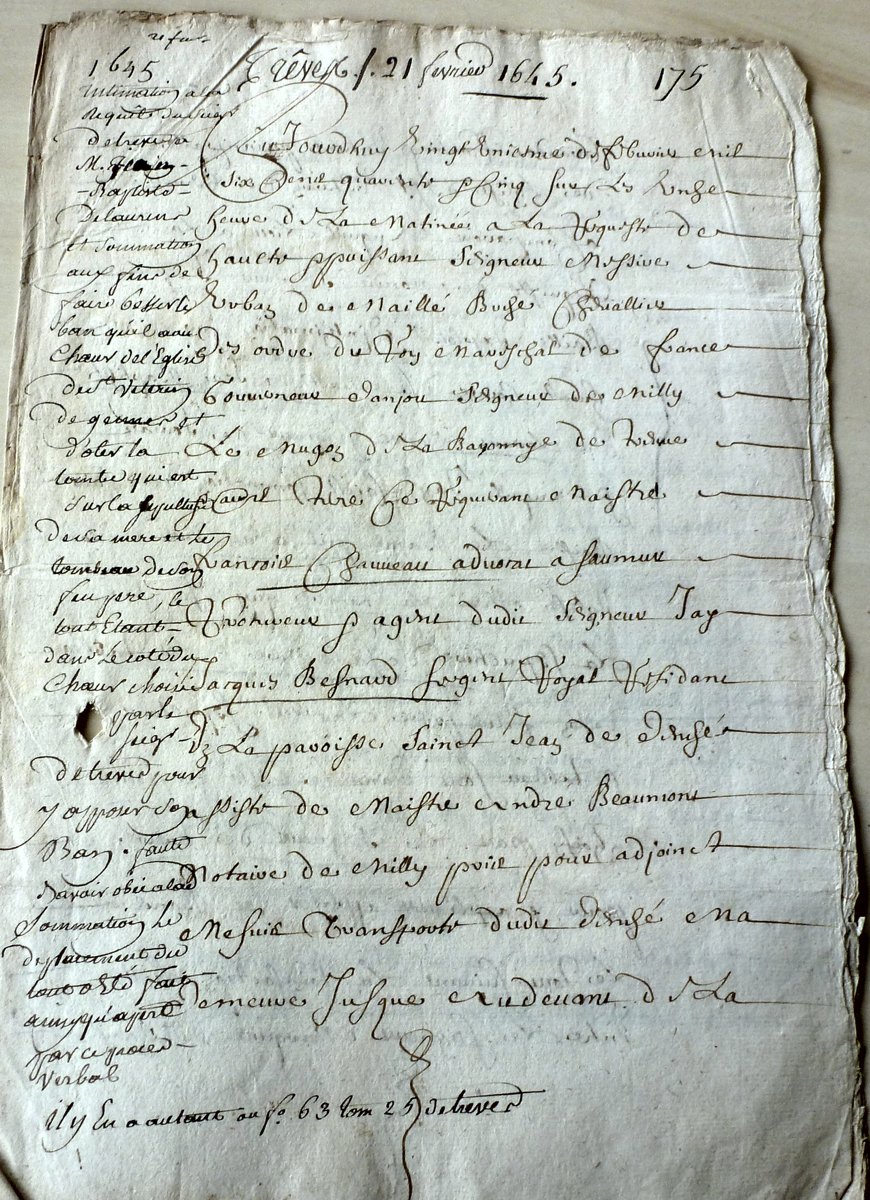 1645
Trèves /. 21 fevrier 1645. 175
Intimation a la
requete du sieur
de treves a
M. Jean
Baptiste
Delaurens
et sommation
aux fins de
faire b oster le
ban qu'il a au
Chœur de l'Eglise
de St Veterin
de gennes et
d'oter la
tombe qui est
sur la sepulture
de sa mere et le
tombeau de son
feu pere, le
tout Etant
dans le coté du
Chœur choisi
par le
seigr
de treves pour
y apposer son
Banj. faute
davoir obei a la de
Sommation le
deplacement du
tout a Eté fait
ainsy qu'apert
par ce procés
verbal
Ce Jourdhuy Vingt Uniesme de febvrier Mil
Six Cens quarente & Cinq sur Les Unse
heure de La Matinée a La Requeste de
haulte & puissant Seigneur Messire
Urban de Maillé Breze Chevallier
des ordre du Roy Mareschal de france
Gouverneur danjou Seigneur de Milly
Le Meugon de La Baronnye de Treve
francois Chauveau advocat a Saumur
Procureur & agent dudit Seigneur Jay
Jacques Besnard sergent Royal Residant
En La paroisse Sainct Jean de
assiste de Maistre Andre Beaumont
Notaire de Milly prins pour adjoinct
Me suis Transporté dudit Ma
demeure Jusque Au devant de La
il y En a autant au fo. 63 tom 25 de treves